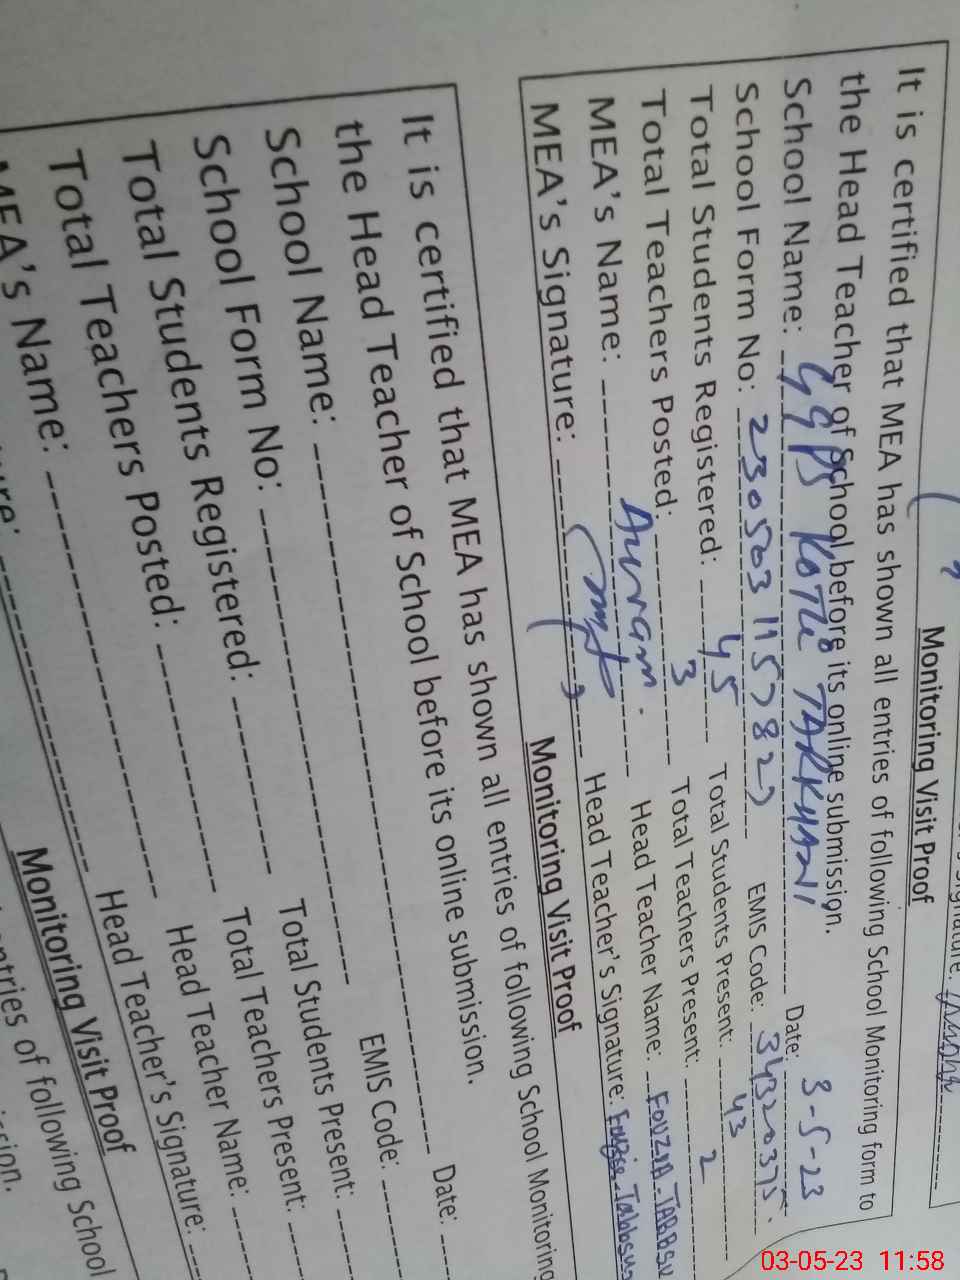 Monitoring Visit Proof
It is certified that MEA has shown all entries of following School Monitoring form to
the Head Teacher of School before its online submission.
School Name: GGPS KOTLI TARKHANI Date: 3-5-23
School Form No: 230503115782 EMIS Code: 34320375
Total Students Registered: 45 Total Students Present: 43
Total Teachers Posted: 3 Total Teachers Present: 2
MEA's Name: Auram. Head Teacher Name: FOUZIA TABBSU
MEA's Signature: Head Teacher's Signature: Fouzia Tabbsum
Monitoring Visit Proof
It is certified that MEA has shown all entries of following School Monitoring
the Head Teacher of School before its online submission.
School Name: Date:
School Form No: EMIS Code:
Total Students Registered: Total Students Present:
Total Teachers Posted: Total Teachers Present:
MEA's Name: Head Teacher Name:
Head Teacher's Signature:
Monitoring Visit Proof
entries of following School
03-05-23 11:58